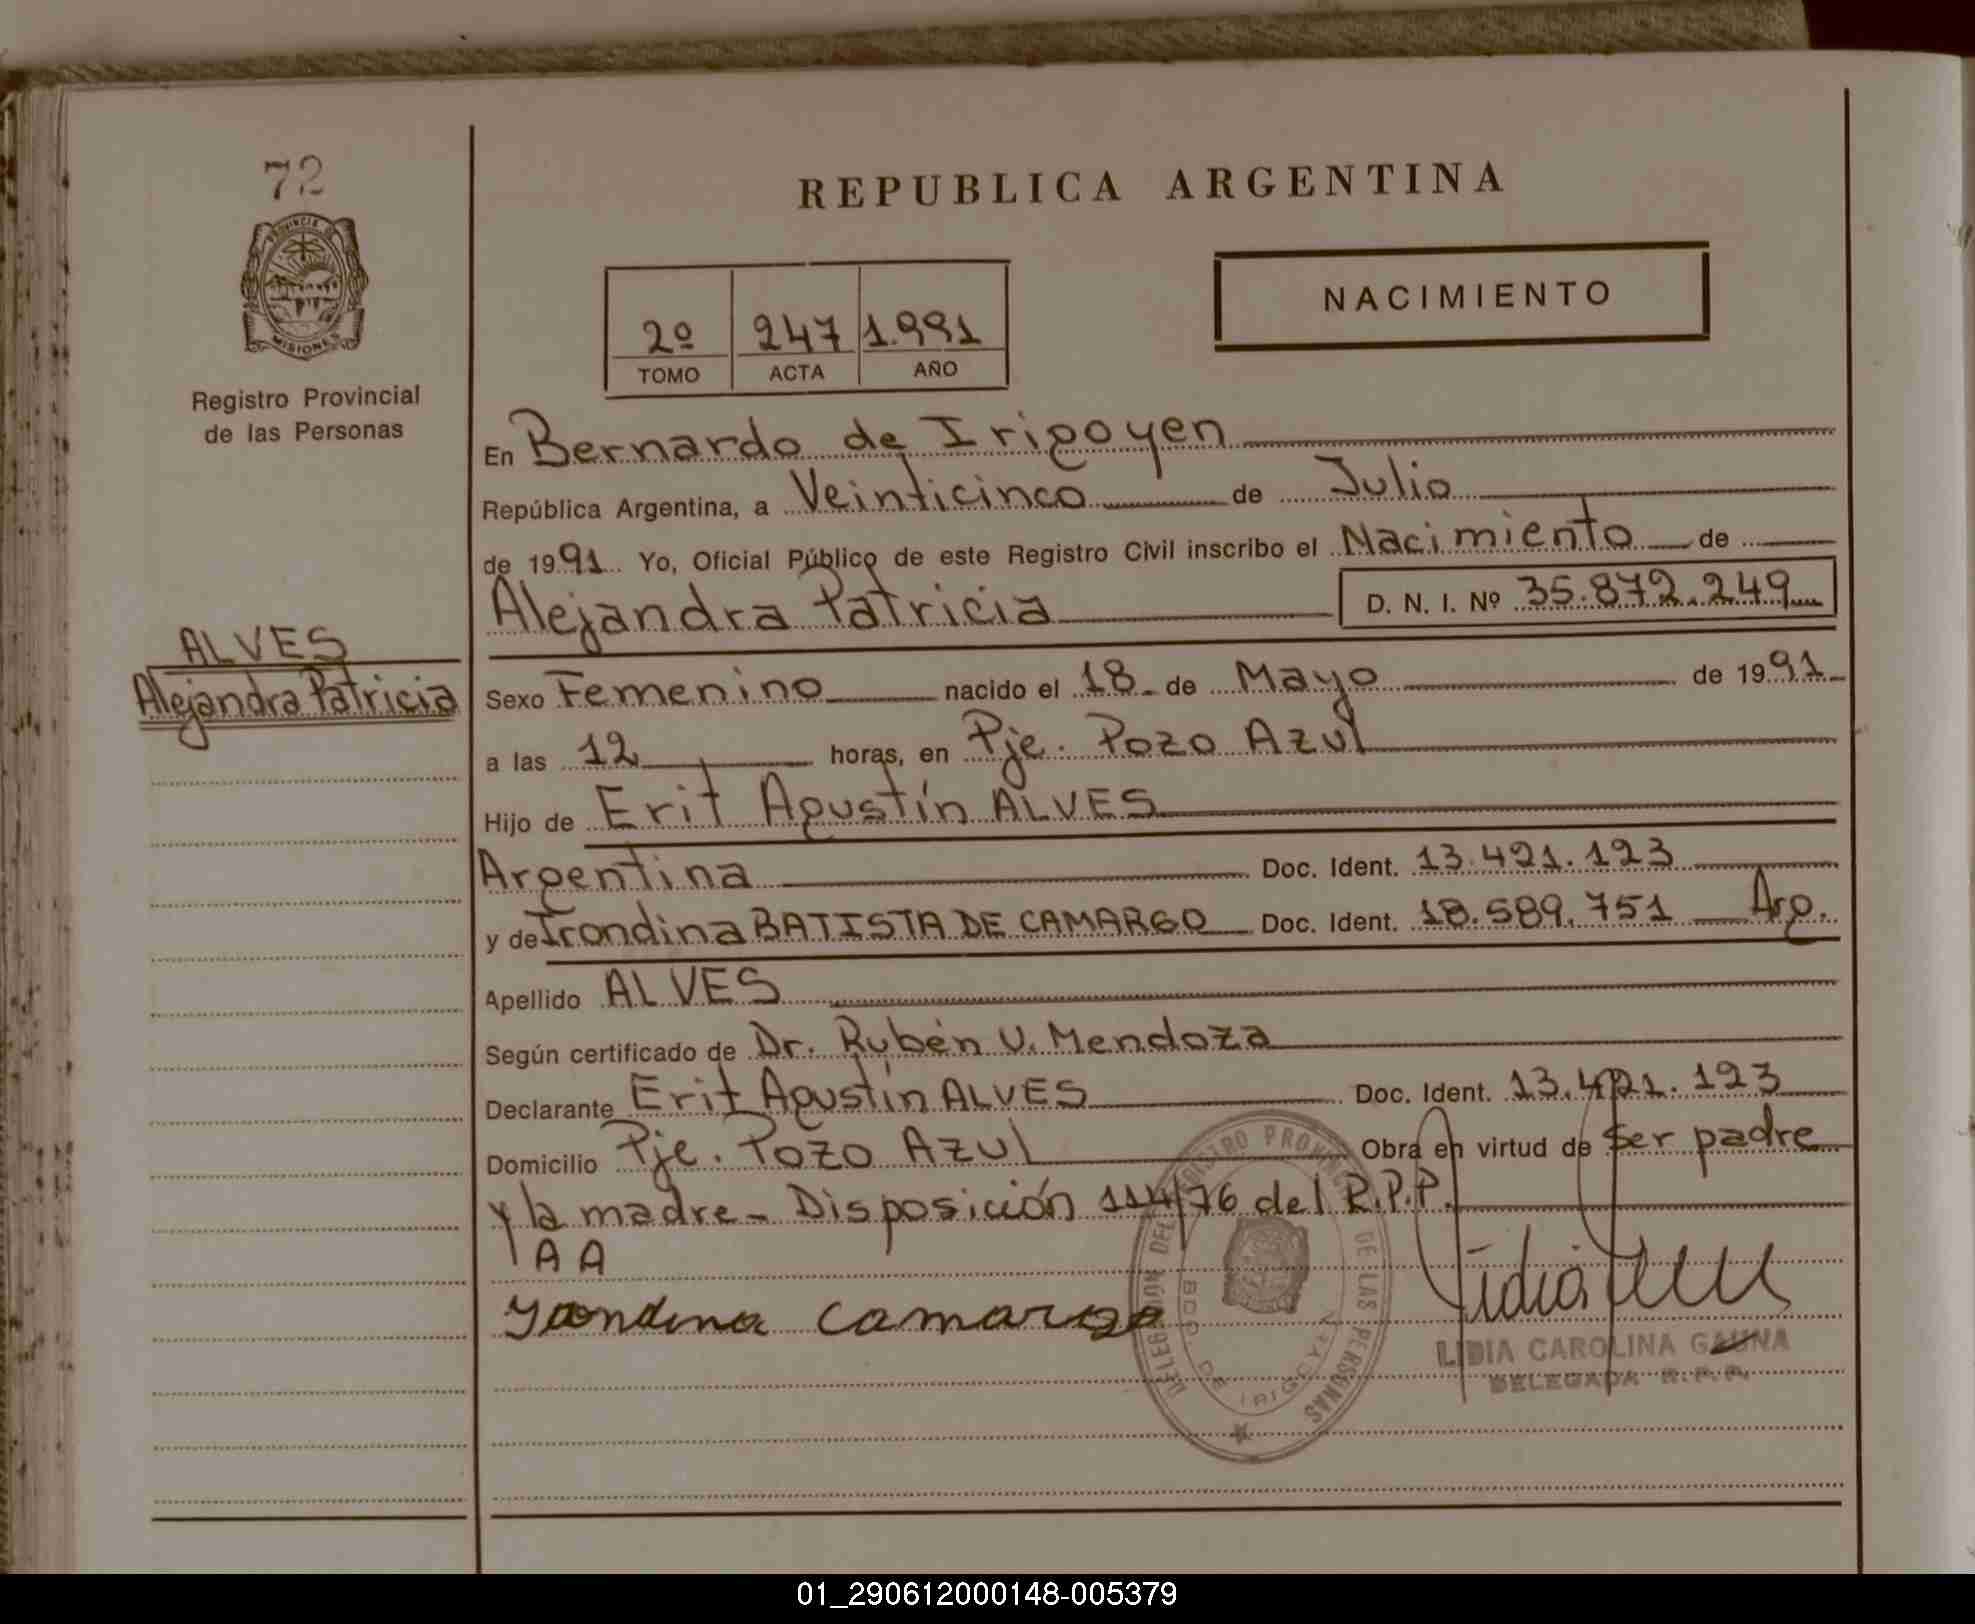 72
PROVINCIA DE
MISIONES
Registro Provincial
de las Personas
ALVES
Alejandra Patricia
REPUBLICA ARGENTINA
2º 247 1.991
TOMO ACTA AÑO
NACIMIENTO
En Bernardo de Irigoyen
República Argentina, a Veinticinco de Julio
de 1991 Yo, Oficial Público de este Registro Civil inscribo el Nacimiento de
Alejandra Patricia D. N. I. Nº 35.872.249
Sexo Femenino nacido el 18 de Mayo de 1991
a las 12 horas, en Pje. Pozo Azul
Hijo de Erit Agustín ALVES
Argentina Doc. Ident. 13.421.123
y de Irondina BATISTA DE CAMARGO Doc. Ident. 18.589.751 Arg.
Apellido ALVES
Según certificado de Dr. Rubén V. Mendoza
Declarante Erit Agustín ALVES Doc. Ident. 13.421.123
Domicilio Pje. Pozo Azul Obra en virtud de ser padre
y la madre - Disposición 114/76 del R.P.P.
A A
camargo
DELEGACION DEL REGISTRO PROVINCIAL DE LAS PERSONAS
BDO. DE IRIGOYEN
Lidia
LIDIA CAROLINA GAUNA
DELEGADA R.P.P.
01_290612000148-005379